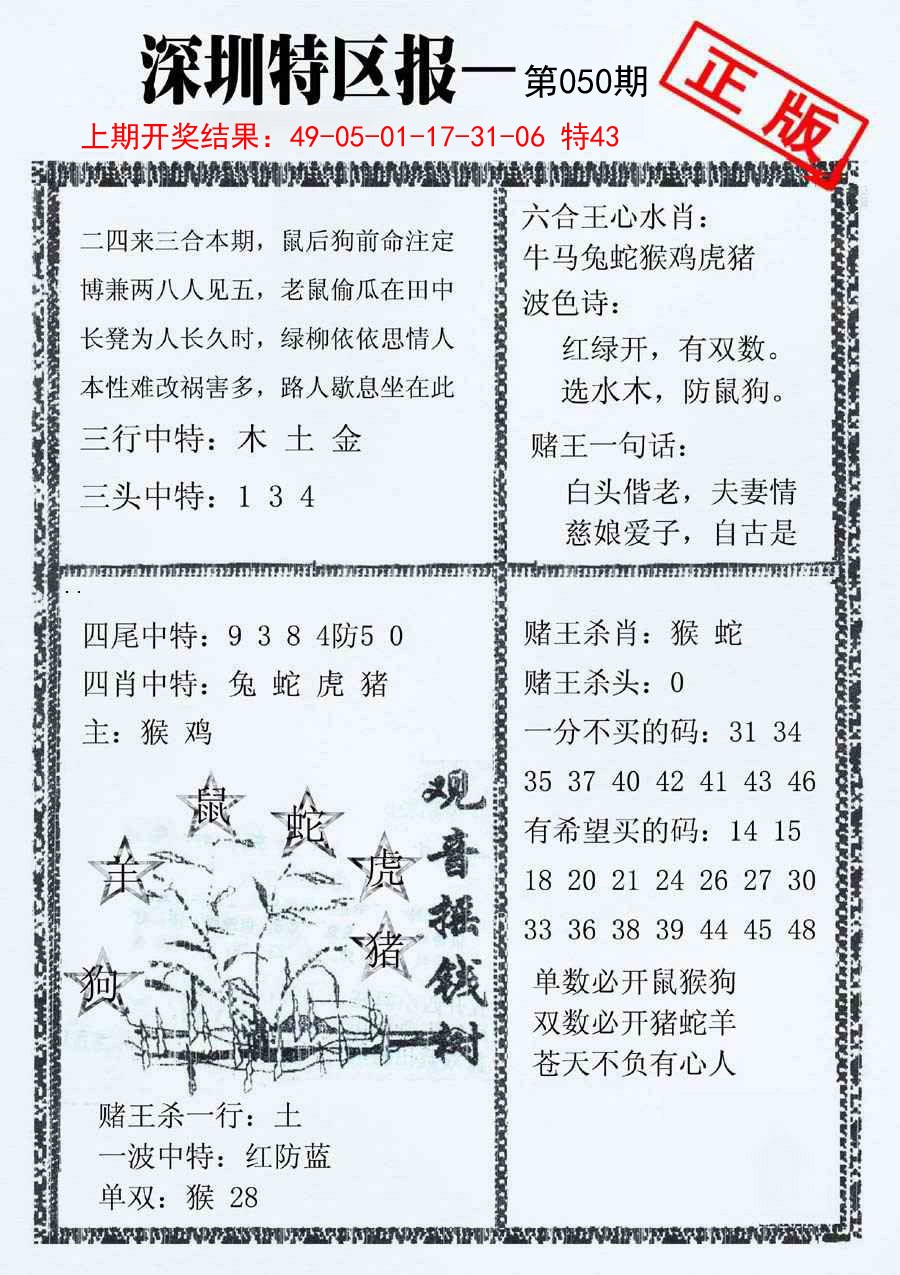 深圳特区报—第050期
正版
上期开奖结果：49-05-01-17-31-06 特43
二四来三合本期，鼠后狗前命注定
博兼两八人见五，老鼠偷瓜在田中
长凳为人长久时，绿柳依依思情人
本性难改祸害多，路人歇息坐在此
三行中特：木 土 金
三头中特：1 3 4
六合王心水肖：
牛马兔蛇猴鸡虎猪
波色诗：
红绿开，有双数。
选水木，防鼠狗。
赌王一句话：
白头偕老，夫妻情
慈娘爱子，自古是
四尾中特：9 3 8 4防5 0
四肖中特：兔 蛇 虎 猪
主：猴 鸡
鼠
蛇
羊
虎
猪
狗
观音摇钱树
赌王杀一行：土
一波中特：红防蓝
单双：猴 28
赌王杀肖：猴 蛇
赌王杀头：0
一分不买的码：31 34
35 37 40 42 41 43 46
有希望买的码：14 15
18 20 21 24 26 27 30
33 36 38 39 44 45 48
单数必开鼠猴狗
双数必开猪蛇羊
苍天不负有心人